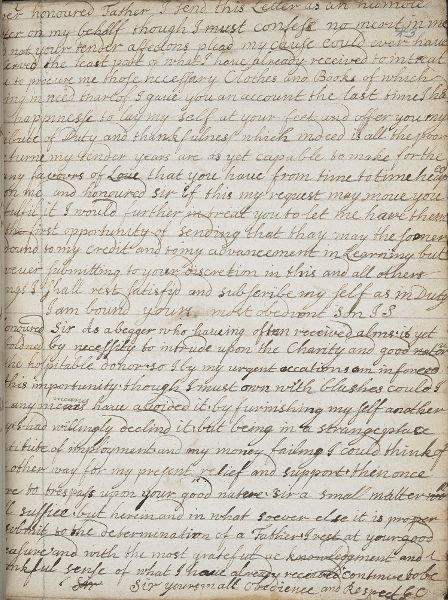 ver honoured Father I send this Letter as an humble
on my behalf though I must confess no merit in me
d not your tender affections plead my cause could ever have
served the least part of what I have already received to intreat
to procure me those necessary Clothes and Books of which
ing in need thareof I gaue you an account the last time I
happinesse to lay my self at your feet and offer you my
of Duty and thankfulness which indeed is all the poor
turne my tender years are as yet capable to make for the
ny favours of Love that you have from time to time heap
on me and honoured Sir if this my request may move you
it I would further intreat you to let me have them
the first opportunity of sending that thay may the sooner
dound to my credit and to my advancement in Learning but
wever submitting to your discretion in this and all others
ngs I shall rest satisfyd and subscribe my self as in Duty
I am bound yours most obedient Son I S
onoured Sir as a begger who haueing often received alms is yet
boldned by necessity to intrude upon the Charity and good
the hospitable donor so I by my urgent occations am inforced
this importunity though I must own with blushes could I
any means have avoided it by furnishing my self another
y I had willingly declind it but being in a strange place
of imployment and my money failing I could think of
other way for my present relief and support then once
re to trespass upon your good nature Sir a small matter
l suffice but herein and in what soever else it is proper
submit to the determination of a Father I rest at your good
easure and with the most grateful acknowledgment and
thankful sense of what I have already received continue to be
Sir Sir yours in all Obedience and Respect &C